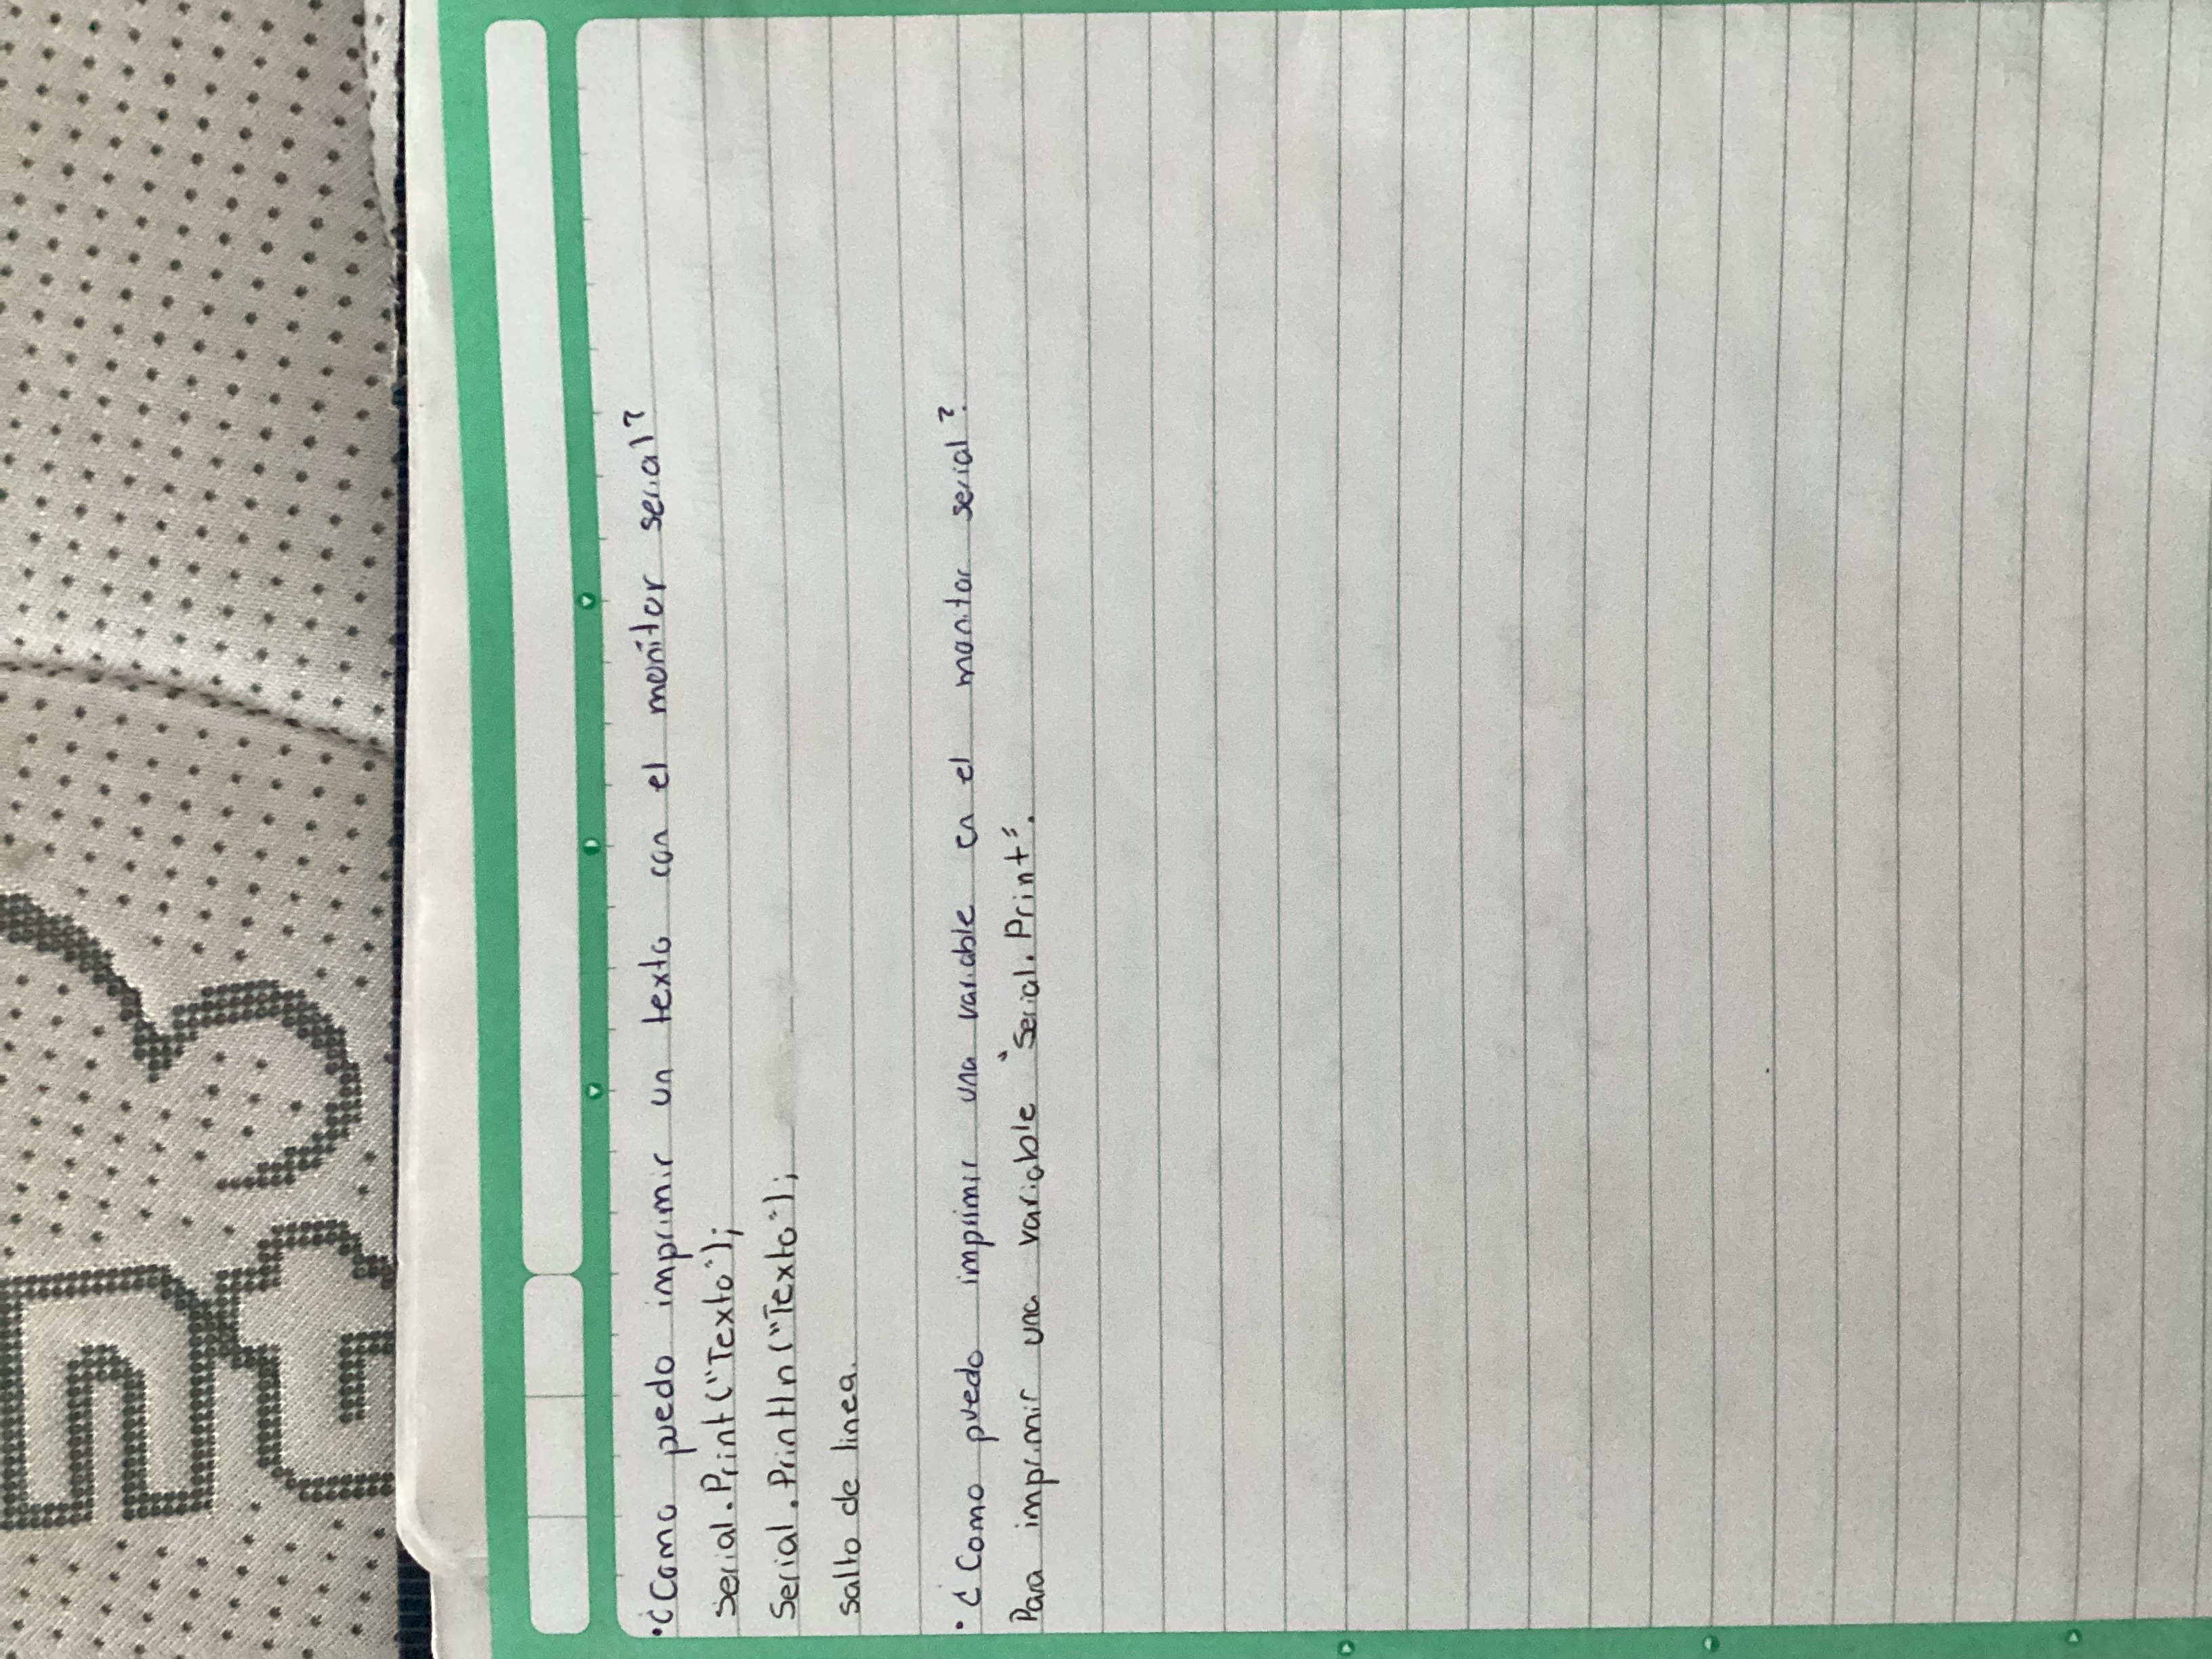 • ¿Como puedo imprimir un texto con el monitor serial?
Serial.Print("Texto");
Serial.Println("Texto");
salto de linea.
• ¿Como puedo imprimir una variable en el monitor serial?
Para imprimir una variable "Serial.Print".